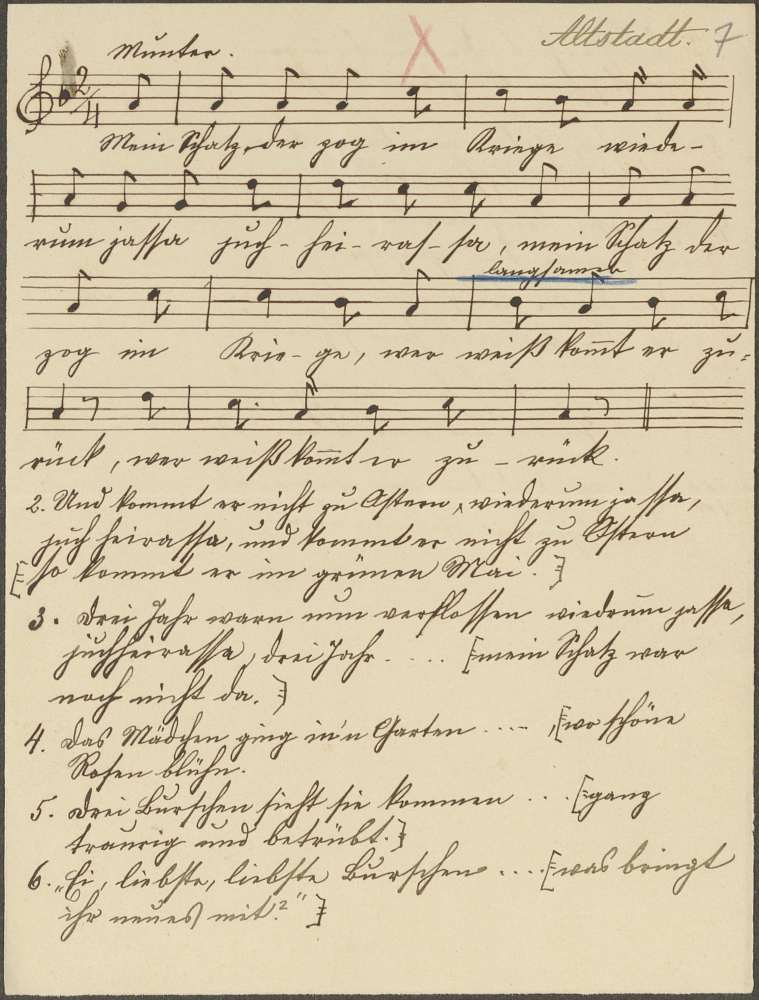 Altstadt. 7
Munter.
2/4
Mein Schatz, der zog im Kriege wiede-
rum jassa juch-hei-ras-sa, mein Schatz der
langsamer
zog im Krie-ge, wer weiß kom̄t er zu-
rück, wer weiß kom̄t er zu-rück.
2. Und kommt er nicht zu Ostern, wiederum jassa,
juchheirassa, und kommt er nicht zu Ostern
[so kommt er im grünen Mai.]
3. Drei Jahr warn nun verflossen wiedrum jassa,
juchheirassa, drei Jahr. . . . [mein Schatz war
noch nicht da.]
4. Das Mädchen ging in'n Garten . . . -, [wo schöne
Rosen blühn.
5. Drei Burschen sieht sie kommen . . . [ganz
traurig und betrübt.]
6. „Ei, liebste, liebste Burschen . . . . [was bringt
ihr neues mit?"]